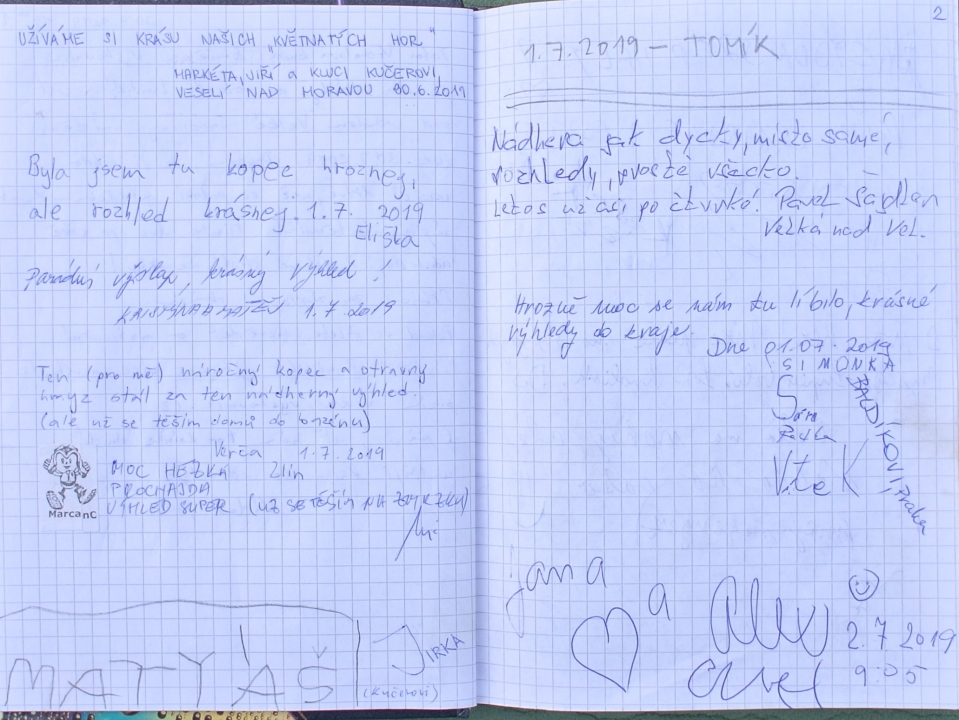 UŽÍVÁME SI KRÁSU NAŠICH „KVĚTNATÝCH HOR“
MARKÉTA, JIŘÍ a KLUCI KUČEROVI,
VESELÍ NAD MORAVOU 30.6.2019
Byla jsem tu kopec hroznej,
ale rozhled krásnej. 1.7. 2019
Eliška
Parádní výšlap, krásný výhled!
1.7.2019
Ten (pro mě) náročný kopec a otravný
hmyz stál za ten nádherný výhled.
(ale už se těším domů do bazénu)
Verča 1.7.2019
Zlín
MOC HEZKÁ
PROCHAJDA
VÝHLED SUPER (UŽ SE TĚŠÍM NA ZMRZKU)
MarcanC
MATYÁŠ
JIRKA
(Kučerovi)
2
1.7.2019 – TOMÍK
Nádhera jak dycky, místo samé,
rozhledy, prostě všecko.
Letos už asi po čtvrté. Pavel
Velká nad Vel.
Hrozně moc se nám tu líbilo, krásné
výhledy do kraje.
Dne 01.07.2019
SIMONKA
Sára
Radka
Vítek
BALDÍKOVI, Praha
Jana
a
2.7 2019
9:05